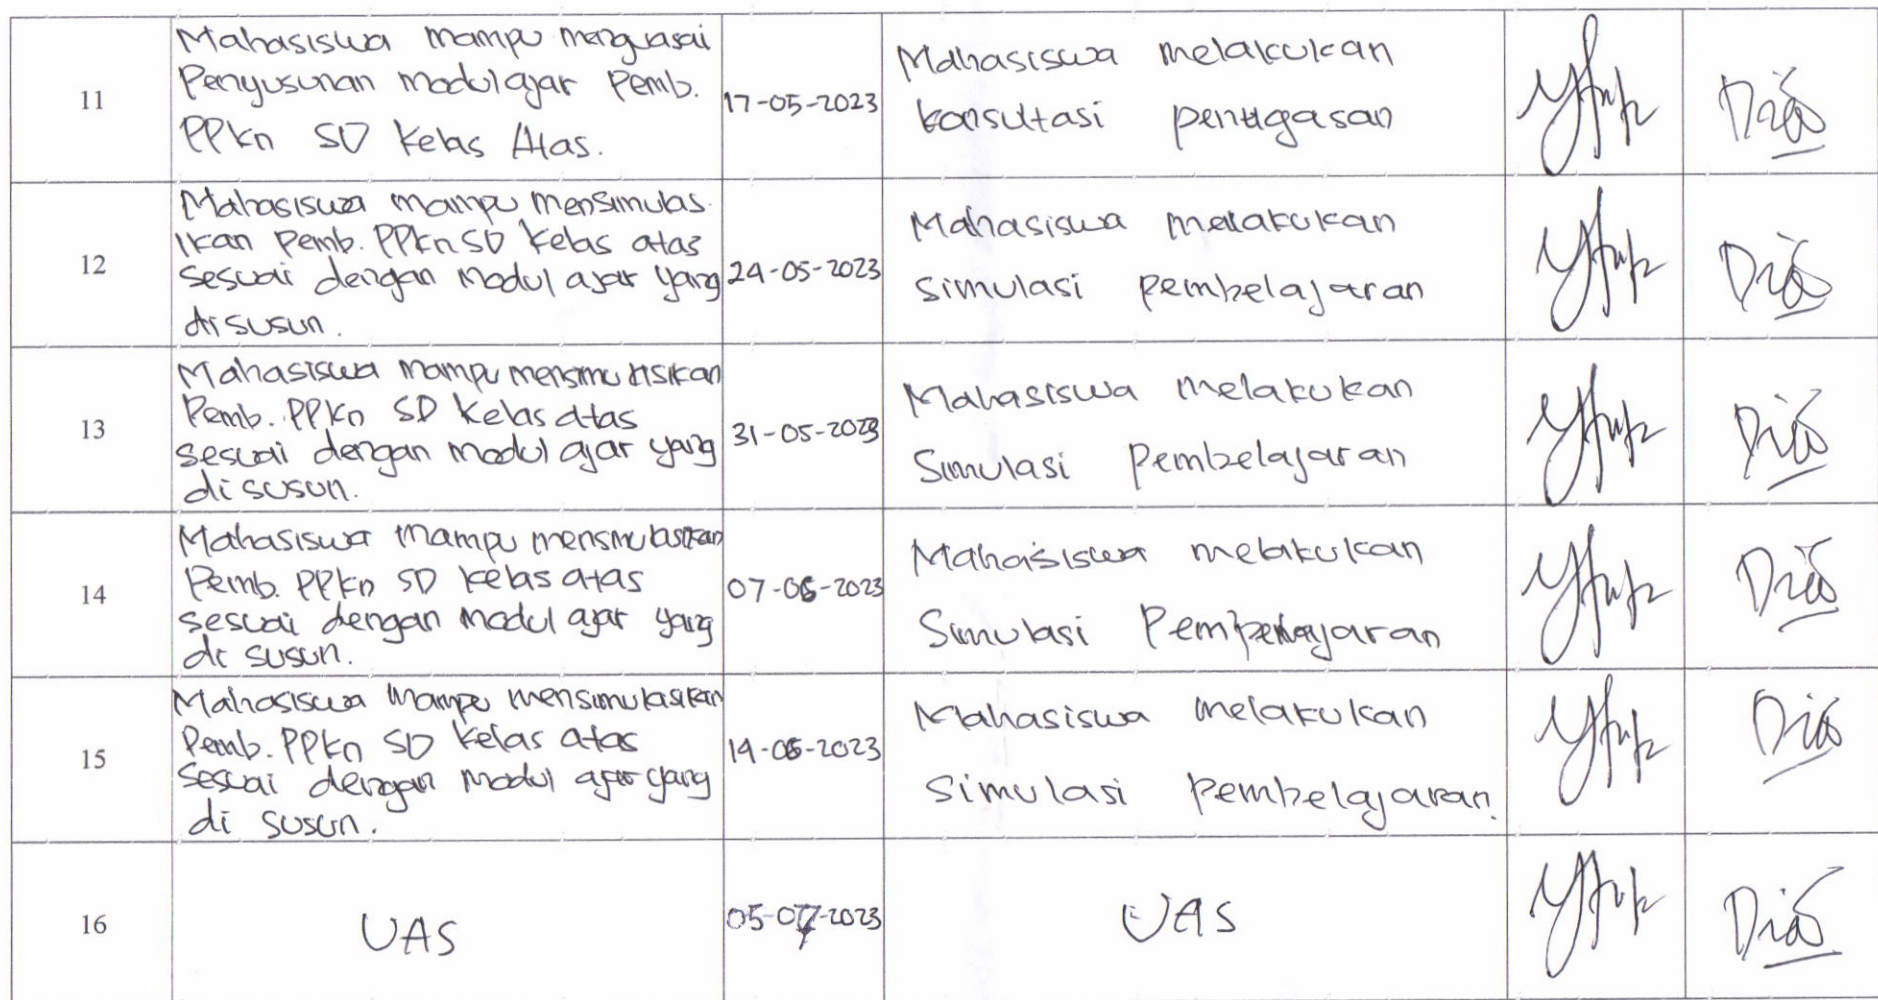 11
Mahasiswa mampu menguasai
Penyusunan modul ajar Pemb.
PPkn SD kelas Atas.
17-05-2023
Mahasiswa melakukan
konsultasi penugasan
12
Mahasiswa mampu mensimulas
ikan Pemb. PPkn SD kelas atas
sesuai dengan modul ajar yang
disusun.
24-05-2023
Mahasiswa melakukan
simulasi pembelajaran
13
Mahasiswa mampu
Pemb. PPkn SD kelas atas
sesuai dengan modul ajar yang
di susun.
31-05-2023
Mahasiswa melakukan
Simulasi Pembelajaran
14
Mahasiswa mampu
Pemb. PPkn SD kelas atas
sesuai dengan modul ajar yang
di susun.
07-06-2023
Mahasiswa melakukan
Simulasi
15
Mahasiswa mampu mensimulasikan
Pemb. PPkn SD kelas atas
sesuai dengan modul ajar yang
di susun.
14-06-2023
Mahasiswa melakukan
Simulasi pembelajaran.
16
UAS
05-07-2023
UAS